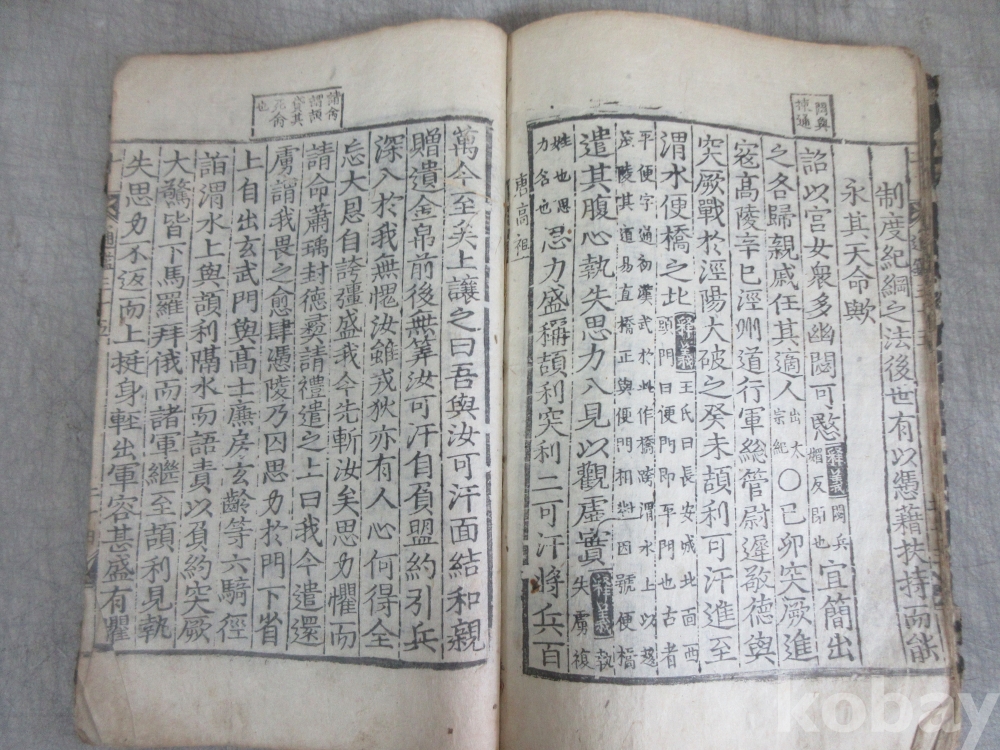 制度紀綱之法後世有以憑藉扶持而能
永其天命歟
詔以宮女衆多幽閟可愍釋義閟兵媚反閉也宜簡出
之各歸親戚任其適人出太宗紀○已卯突厥進
寇高陵辛巳涇州道行軍緫管尉遲敬德與
突厥戰於涇陽大破之癸未頡利可汗進至
渭水便橋之北釋義王氏曰長安城北面西頭門曰便門即平門也古者
平便字通初漢武於此作橋跨渭水上以趍
茂陵其道易直橋正與便門相對因號便橋
遣其腹心執失思力入見以觀虛實釋義執失虜複
姓也思力名也思力盛稱頡利突利二可汗將兵百
唐高祖
萬今至矣上讓之曰吾與汝可汗面結和親
贈遺金帛前後無筭汝可汗自負盟約引兵
深入於我無愧汝雖戎狄亦有人心何得全
忘大恩自誇彊盛我今先斬汝矣思力懼而
請命蕭瑀封德彛請禮遣之上曰我今遣還
虜謂我畏之愈肆憑陵乃囚思力於門下省
上自出玄武門與高士廉房玄齡等六騎徑
詣渭水上與頡利隔水而語責以負約突厥
大驚皆下馬羅拜俄而諸軍繼至頡利見執
失思力不返而上挺身輕出軍容甚盛有懼
kobay